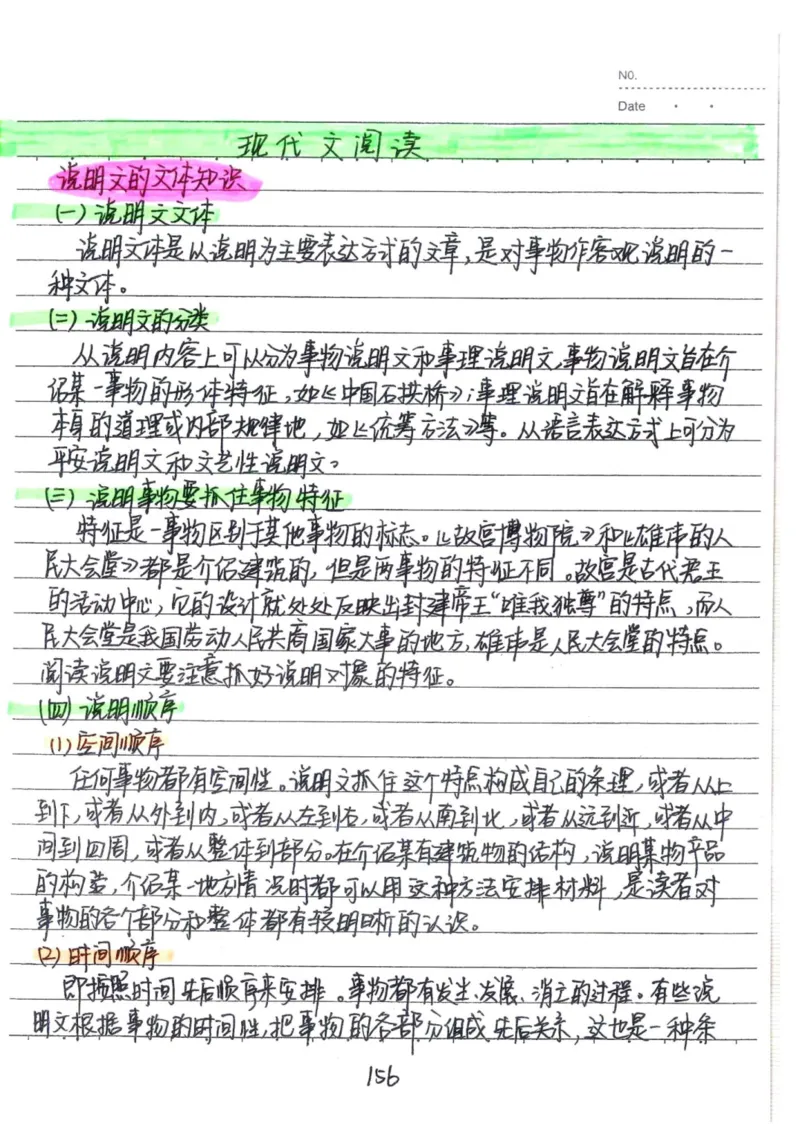 NO.
Date
现代文阅读
说明文的文体知识
(一)说明文文体
说明文体是以说明为主要表达方式的文章,是对事物作客观说明的一
种文体。
(二)说明文的分类
从说明内容上可以分为事物说明文和事理说明文,事物说明文旨在介
绍某一事物的形体特征,如《中国石拱桥》;事理说明文旨在解释事物
本身的道理或内部规律地,如《统筹方法》等。从语言表达方式上可分为
平安说明文和文艺性说明文。
(三)说明事物要抓住事物特征
特征是一事物区别于其他事物的标志。《故宫博物院》和《雄伟的人
民大会堂》都是介绍建筑的,但是两事物的特征不同。故宫是古代君王
的活动中心,它的设计就处处反映出封建帝王“唯我独尊”的特点,而人
民大会堂是我国劳动人民共商国家大事的地方,雄伟是人民大会堂的特点。
阅读说明文要注意抓好说明对象的特征。
(四)说明顺序
(1)空间顺序
任何事物都有空间性。说明文抓住这个特点构成自己的条理,或者从上
到下,或者从外到内,或者从左到右,或者从南到北,或者从远到近,或者从中
间到四周,或者从整体到部分。在介绍某有建筑物的结构,说明某物产品
的构造,介绍某一地方情况时都可以用这种方法安排材料,是读者对
事物的各个部分和整体都有较明晰的认识。
(2)时间顺序
即按照时间先后顺序来安排。事物都有发生、发展、消亡的过程。有些说
明文根据事物的时间性,把事物的各部分组成先后关系,这也是一种条
156